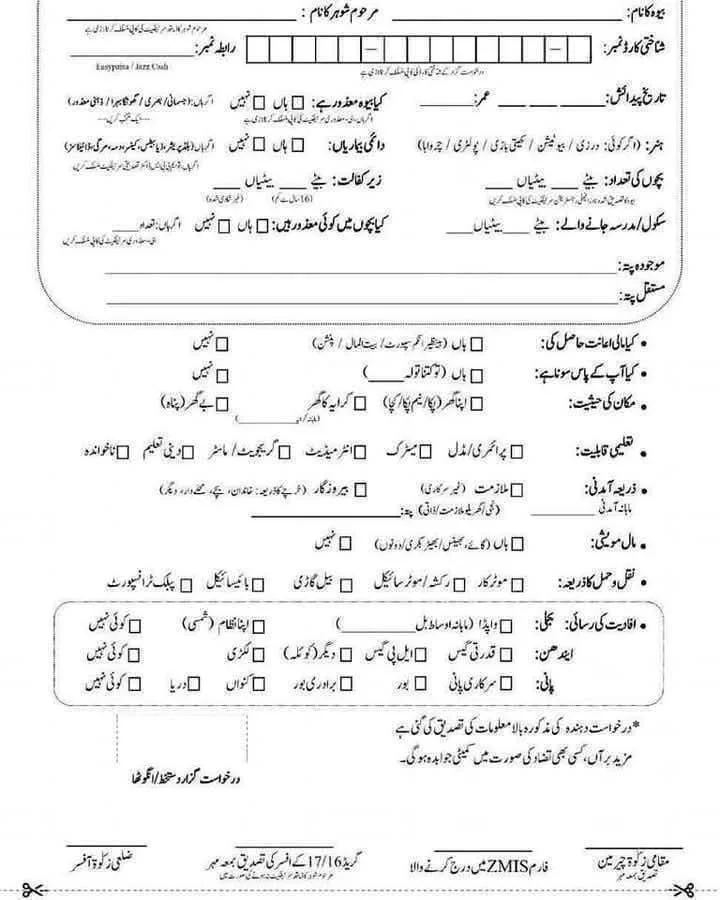 بیوہ کا نام: ____________ مرحوم شوہر کا نام: ____________
مرحوم شوہر کا نادرا سرٹیفکیٹ کی کاپی منسلک کرنا لازمی ہے
شناختی کارڈ نمبر: رابطہ نمبر: ____________
درخواست گزار کے شناختی کارڈ کی کاپی منسلک کرنا لازمی ہے Easypaisa / Jazz Cash
تاریخ پیدائش: ____________ عمر: ______ کیا بیوہ معذور ہے: □ ہاں □ نہیں اگر ہاں: (جسمانی / بصری / گونگا بہرا / ذہنی معذور)
ہنر: (اگر کوئی: درزی / بیوٹیشن / کھیتی باڑی / پولٹری / چرواہا) دائمی بیماریاں: □ ہاں □ نہیں اگر ہاں: (بلڈ پریشر، ذیابیطس، کینسر، دمہ، مرگی، ڈائیلاسز)
بچوں کی تعداد: بیٹے ____ بیٹیاں ____ زیر کفالت: بیٹے ____ بیٹیاں ____
(16 سال سے کم) (غیر شادی شدہ)
سکول/مدرسہ جانے والے: بیٹے ____ بیٹیاں ____ کیا بچوں میں کوئی معذور ہیں: □ ہاں □ نہیں اگر ہاں: تعداد ____
موجودہ پتہ: ____________
مستقل پتہ: ____________
• کیا مالی اعانت حاصل کی: □ ہاں (بینظیر انکم سپورٹ / بیت المال / پنشن) □ نہیں
• کیا آپ کے پاس سونا ہے: □ ہاں (تو کتنا تولہ ____) □ نہیں
• مکان کی حیثیت: □ اپنا گھر (پکا/نیم پکا/کچا) □ کرایہ کا گھر □ بے گھر (پناہ)
(ماہانہ کرایہ ____________)
• تعلیمی قابلیت: □ پرائمری/مڈل □ میٹرک □ انٹرمیڈیٹ □ گریجویٹ/ ماسٹر □ دینی تعلیم □ ناخواندہ
• ذریعہ آمدنی: □ ملازمت (غیر سرکاری) □ بیروزگار (خرچے کا ذریعہ: خاندان، بچے، محلے دار، دیگر)
ماہانہ آمدنی ____________ (نجی/گھریلو ملازمت/ذاتی) پتہ: ____________
• مال مویشی: □ ہاں (گائے، بھینس/بھیڑ بکری/دونوں) □ نہیں
• نقل و حمل کا ذریعہ: □ موٹر کار □ رکشہ/موٹر سائیکل □ بیل گاڑی □ بائیسائیکل □ پبلک ٹرانسپورٹ
• افادیت کی رسائی: بجلی: □ واپڈا (ماہانہ اوسط بل ____________) □ اپنا نظام (شمسی) □ کوئی نہیں
ایندھن: □ قدرتی گیس □ ایل پی گیس □ دیگر (کوئلہ) □ لکڑی □ کوئی نہیں
پانی: □ سرکاری پانی □ بور □ برادری بور □ کنواں □ دریا □ کوئی نہیں
*درخواست دہندہ کی مذکورہ بالا معلومات کی تصدیق کی گئی ہے
مزید برآں، کسی بھی تضاد کی صورت میں کمیٹی جوابدہ ہوگی۔
درخواست گزار دستخط/انگوٹھا
مقامی زکوٰۃ چیرمین فارم ZMIS میں درج کرنے والا گریڈ 17/16 کے افسر کی تصدیق بمعہ مہر ضلعی زکوٰۃ آفسر
تصدیق بمعہ مہر